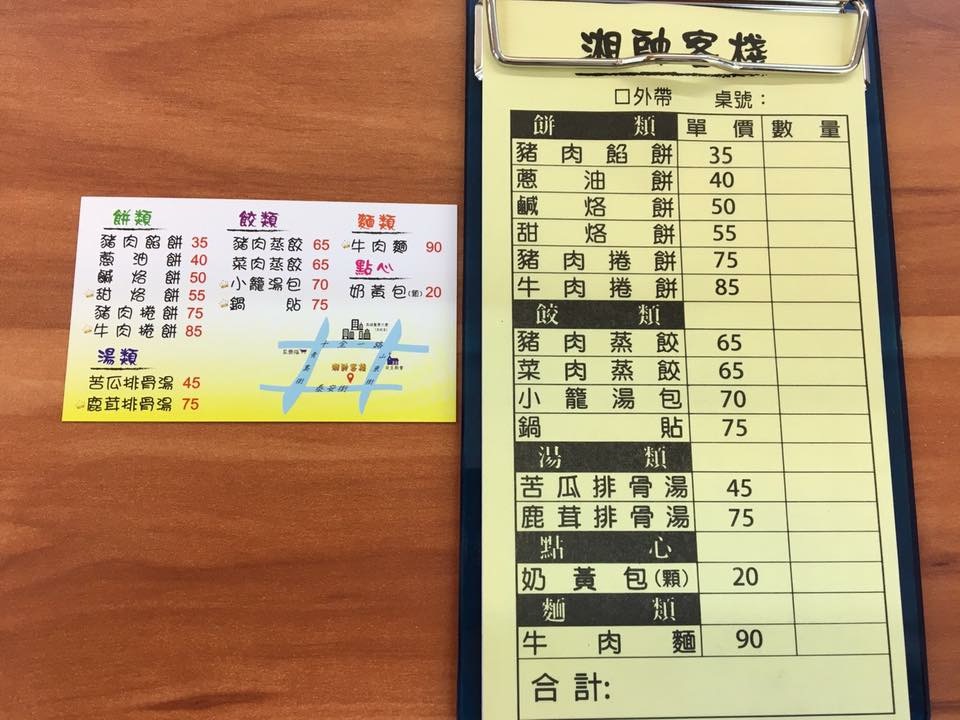 餅類
豬肉餡餅 35
蔥油餅 40
鹹烙餅 50
甜烙餅 55
豬肉捲餅 75
牛肉捲餅 85
湯類
苦瓜排骨湯 45
鹿茸排骨湯 75
餃類
豬肉蒸餃 65
菜肉蒸餃 65
小籠湯包 70
鍋貼 75
麵類
牛肉麵 90
點心
奶黃包(顆) 20
十全一路
山東街
湘帥客棧
泰安街
湘帥客棧
□外帶 桌號：
餅類 單價 數量
豬肉餡餅 35
蔥油餅 40
鹹烙餅 50
甜烙餅 55
豬肉捲餅 75
牛肉捲餅 85
餃類
豬肉蒸餃 65
菜肉蒸餃 65
小籠湯包 70
鍋貼 75
湯類
苦瓜排骨湯 45
鹿茸排骨湯 75
點心
奶黃包(顆) 20
麵類
牛肉麵 90
合計: